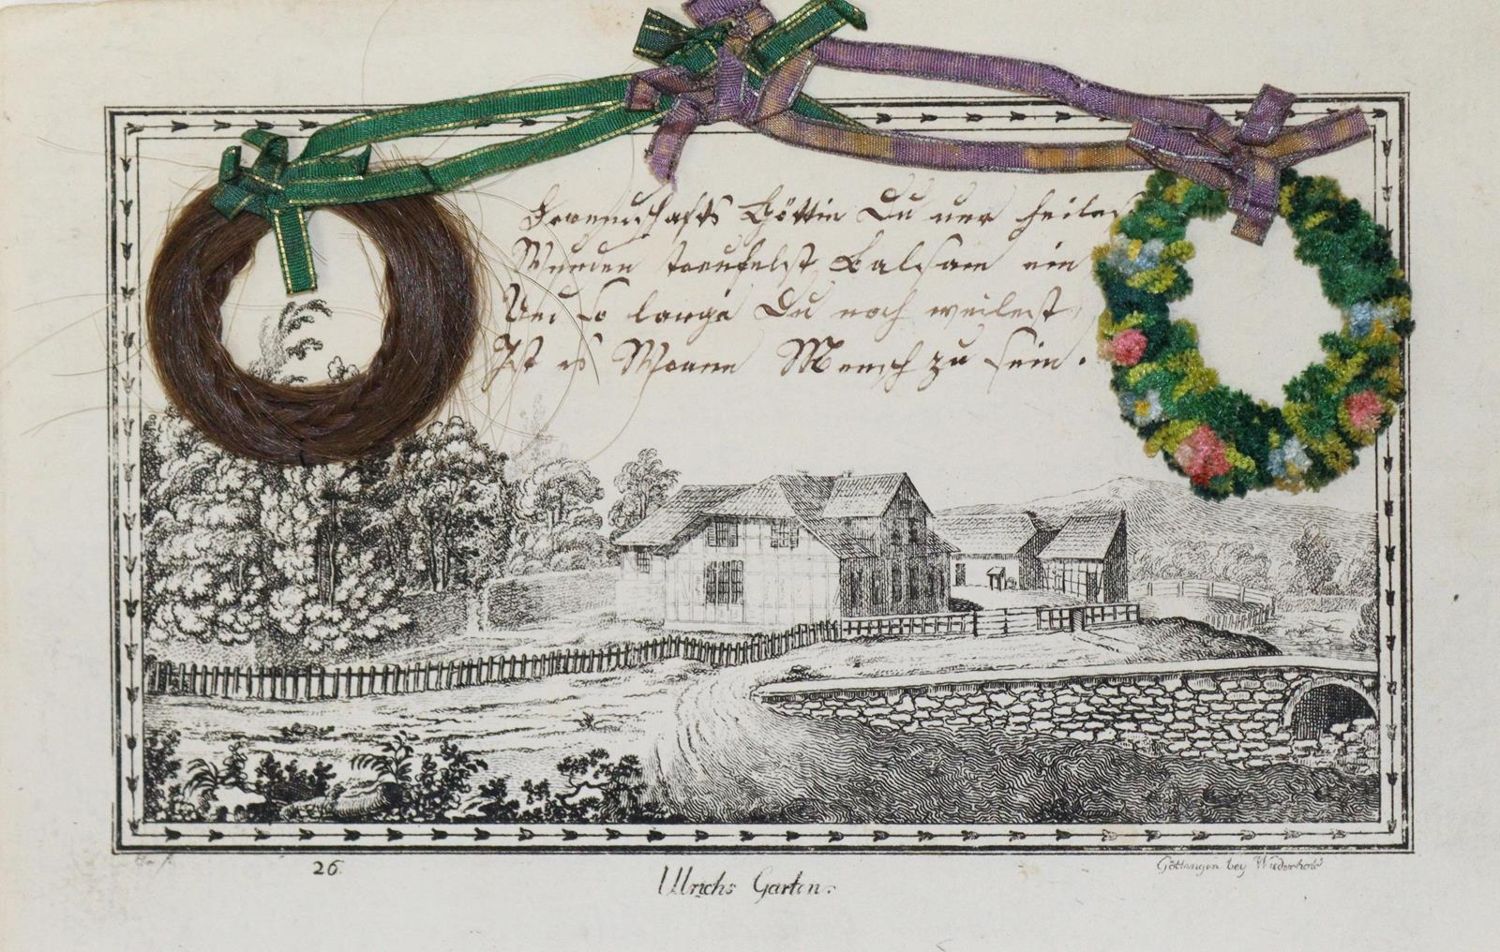 Freundschafts Göttin Du nur heilest
Wunden träufelst Balsam ein
Und so lange Du noch weilest
Ist es Wonne Mensch zu sein.
26
Ulrichs Garten.
Göttingen bey Wiederhold